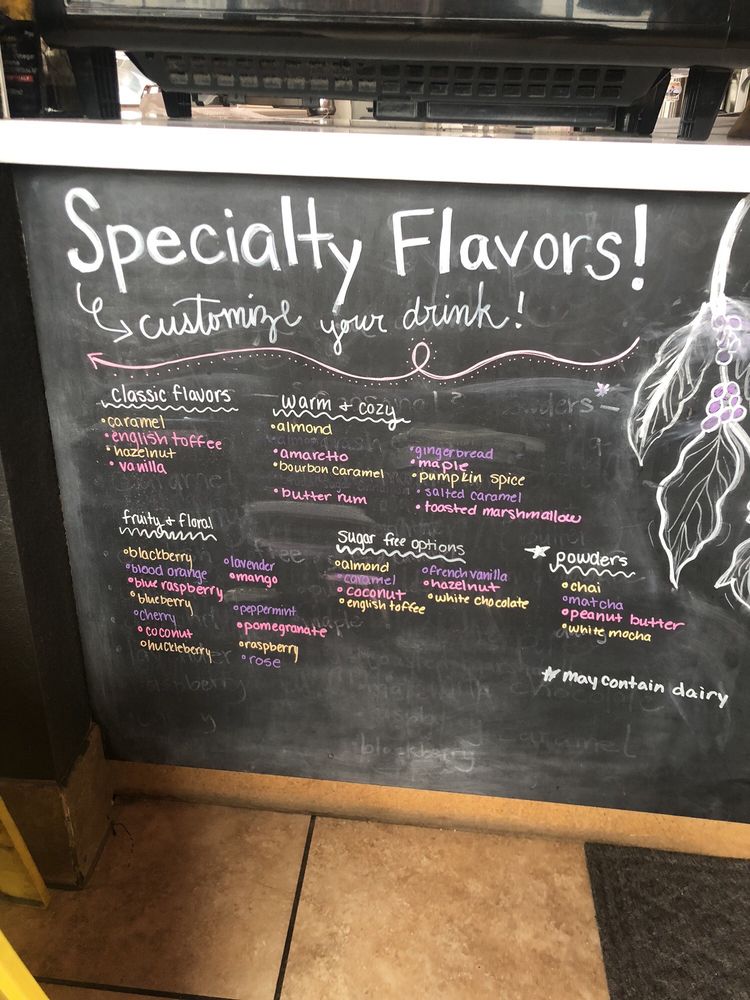 Specialty Flavors!
customize your drink!
classic flavors
caramel
english toffee
hazelnut
vanilla
warm + cozy
almond
amaretto
bourbon caramel
butter rum
gingerbread
maple
pumpkin spice
salted caramel
toasted marshmallow
fruity + floral
blackberry
blood orange
blue raspberry
blueberry
cherry
coconut
huckleberry
lavender
mango
peppermint
pomegranate
raspberry
rose
sugar free options
almond
caramel
coconut
english toffee
french vanilla
hazelnut
white chocolate
powders
chai
matcha
peanut butter
white mocha
*may contain dairy